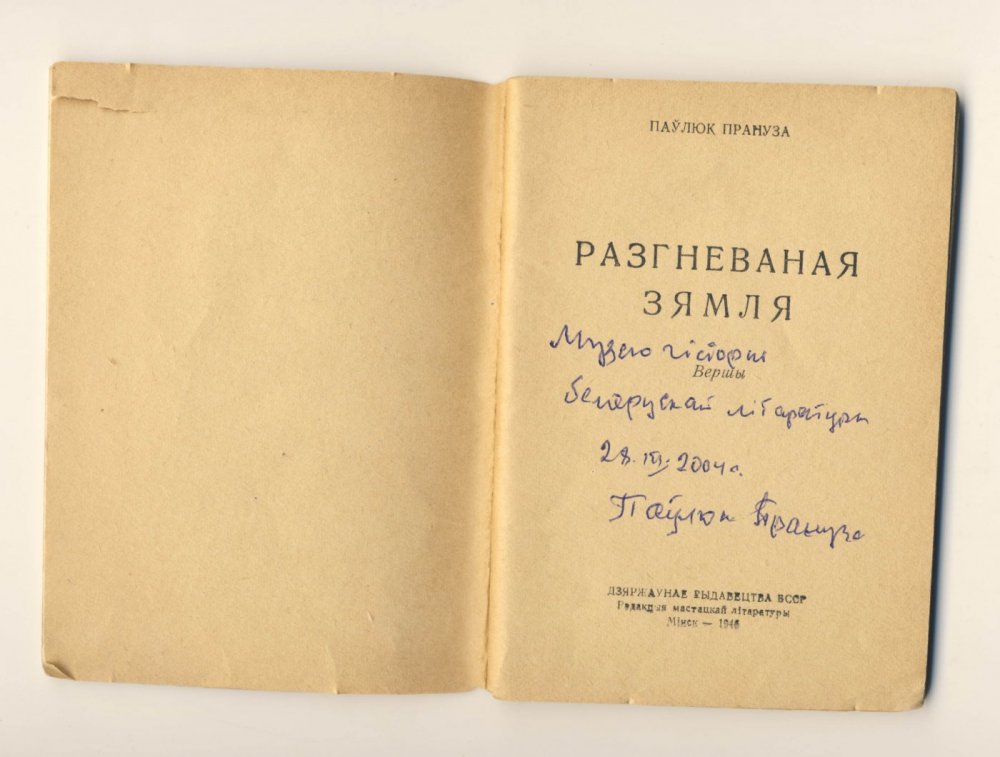 ПАЎЛЮК ПРАНУЗА
РАЗГНЕВАНАЯ
ЗЯМЛЯ
Музею гісторыі
Вершы
беларускай літаратуры
28.III.2004 г.
Паўлюк Прануза
ДЗЯРЖАУНАЕ ВЫДАВЕЦТВА БССР
Рэдакцыя мастацкай літаратуры
Мінск — 1946